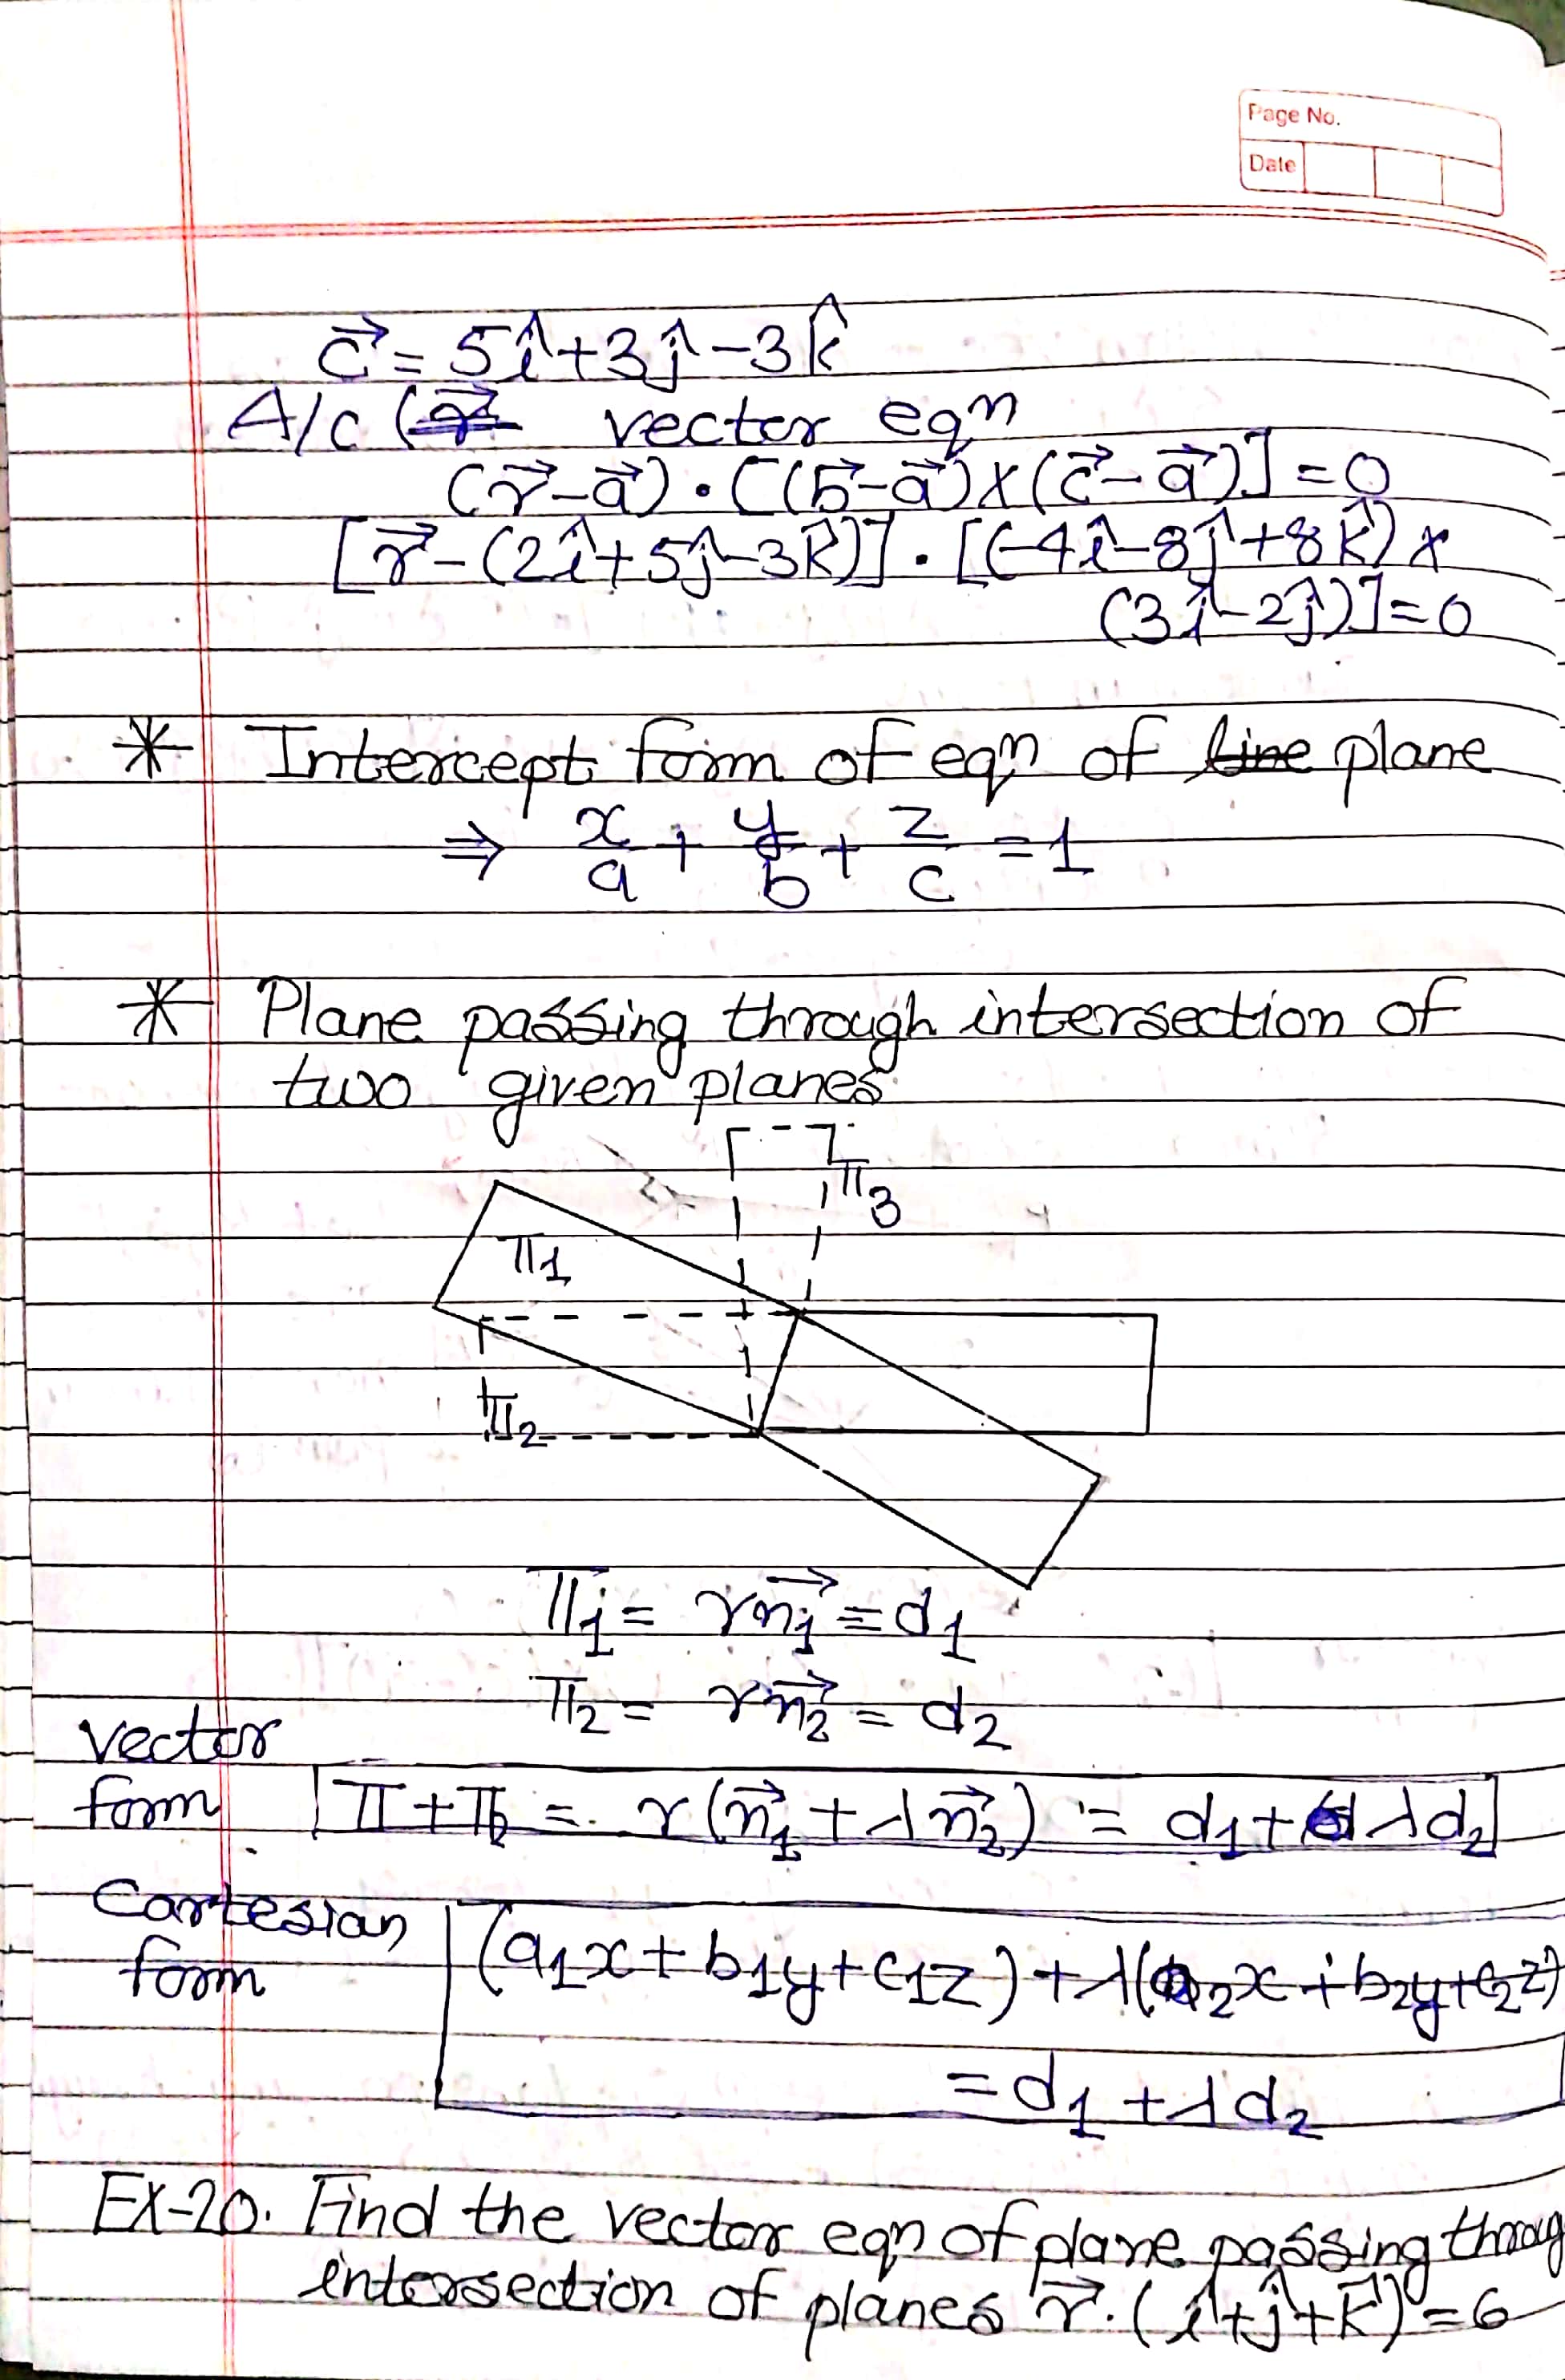 Page No.
Date
c⃗ = 5î+3ĵ-3k̂
A/c ( vector eqn
(r⃗-a⃗)·[(b⃗-a⃗)×(c⃗-a⃗)]=0
[r⃗-(2î+5ĵ-3k̂)]·[(-4î-8ĵ+8k̂)×
(3î-2ĵ)]=0
* Intercept form of eqn of line plane
⇒ x/a + y/b + z/c = 1
* Plane passing through intersection of
two given planes
π3
π1
π2
π1 = rn1⃗ = d1
π2 = rn2⃗ = d2
vector
form π+π2 = r(n⃗1+λn⃗2) = d1+λd2
Cartesian
form (a1x+b1y+c1z)+λ(a2x+b2y+c2z)
=d1+λd2
EX-20. Find the vector eqn of plane passing throug
intersection of planes r⃗.(î+ĵ+k̂)=6